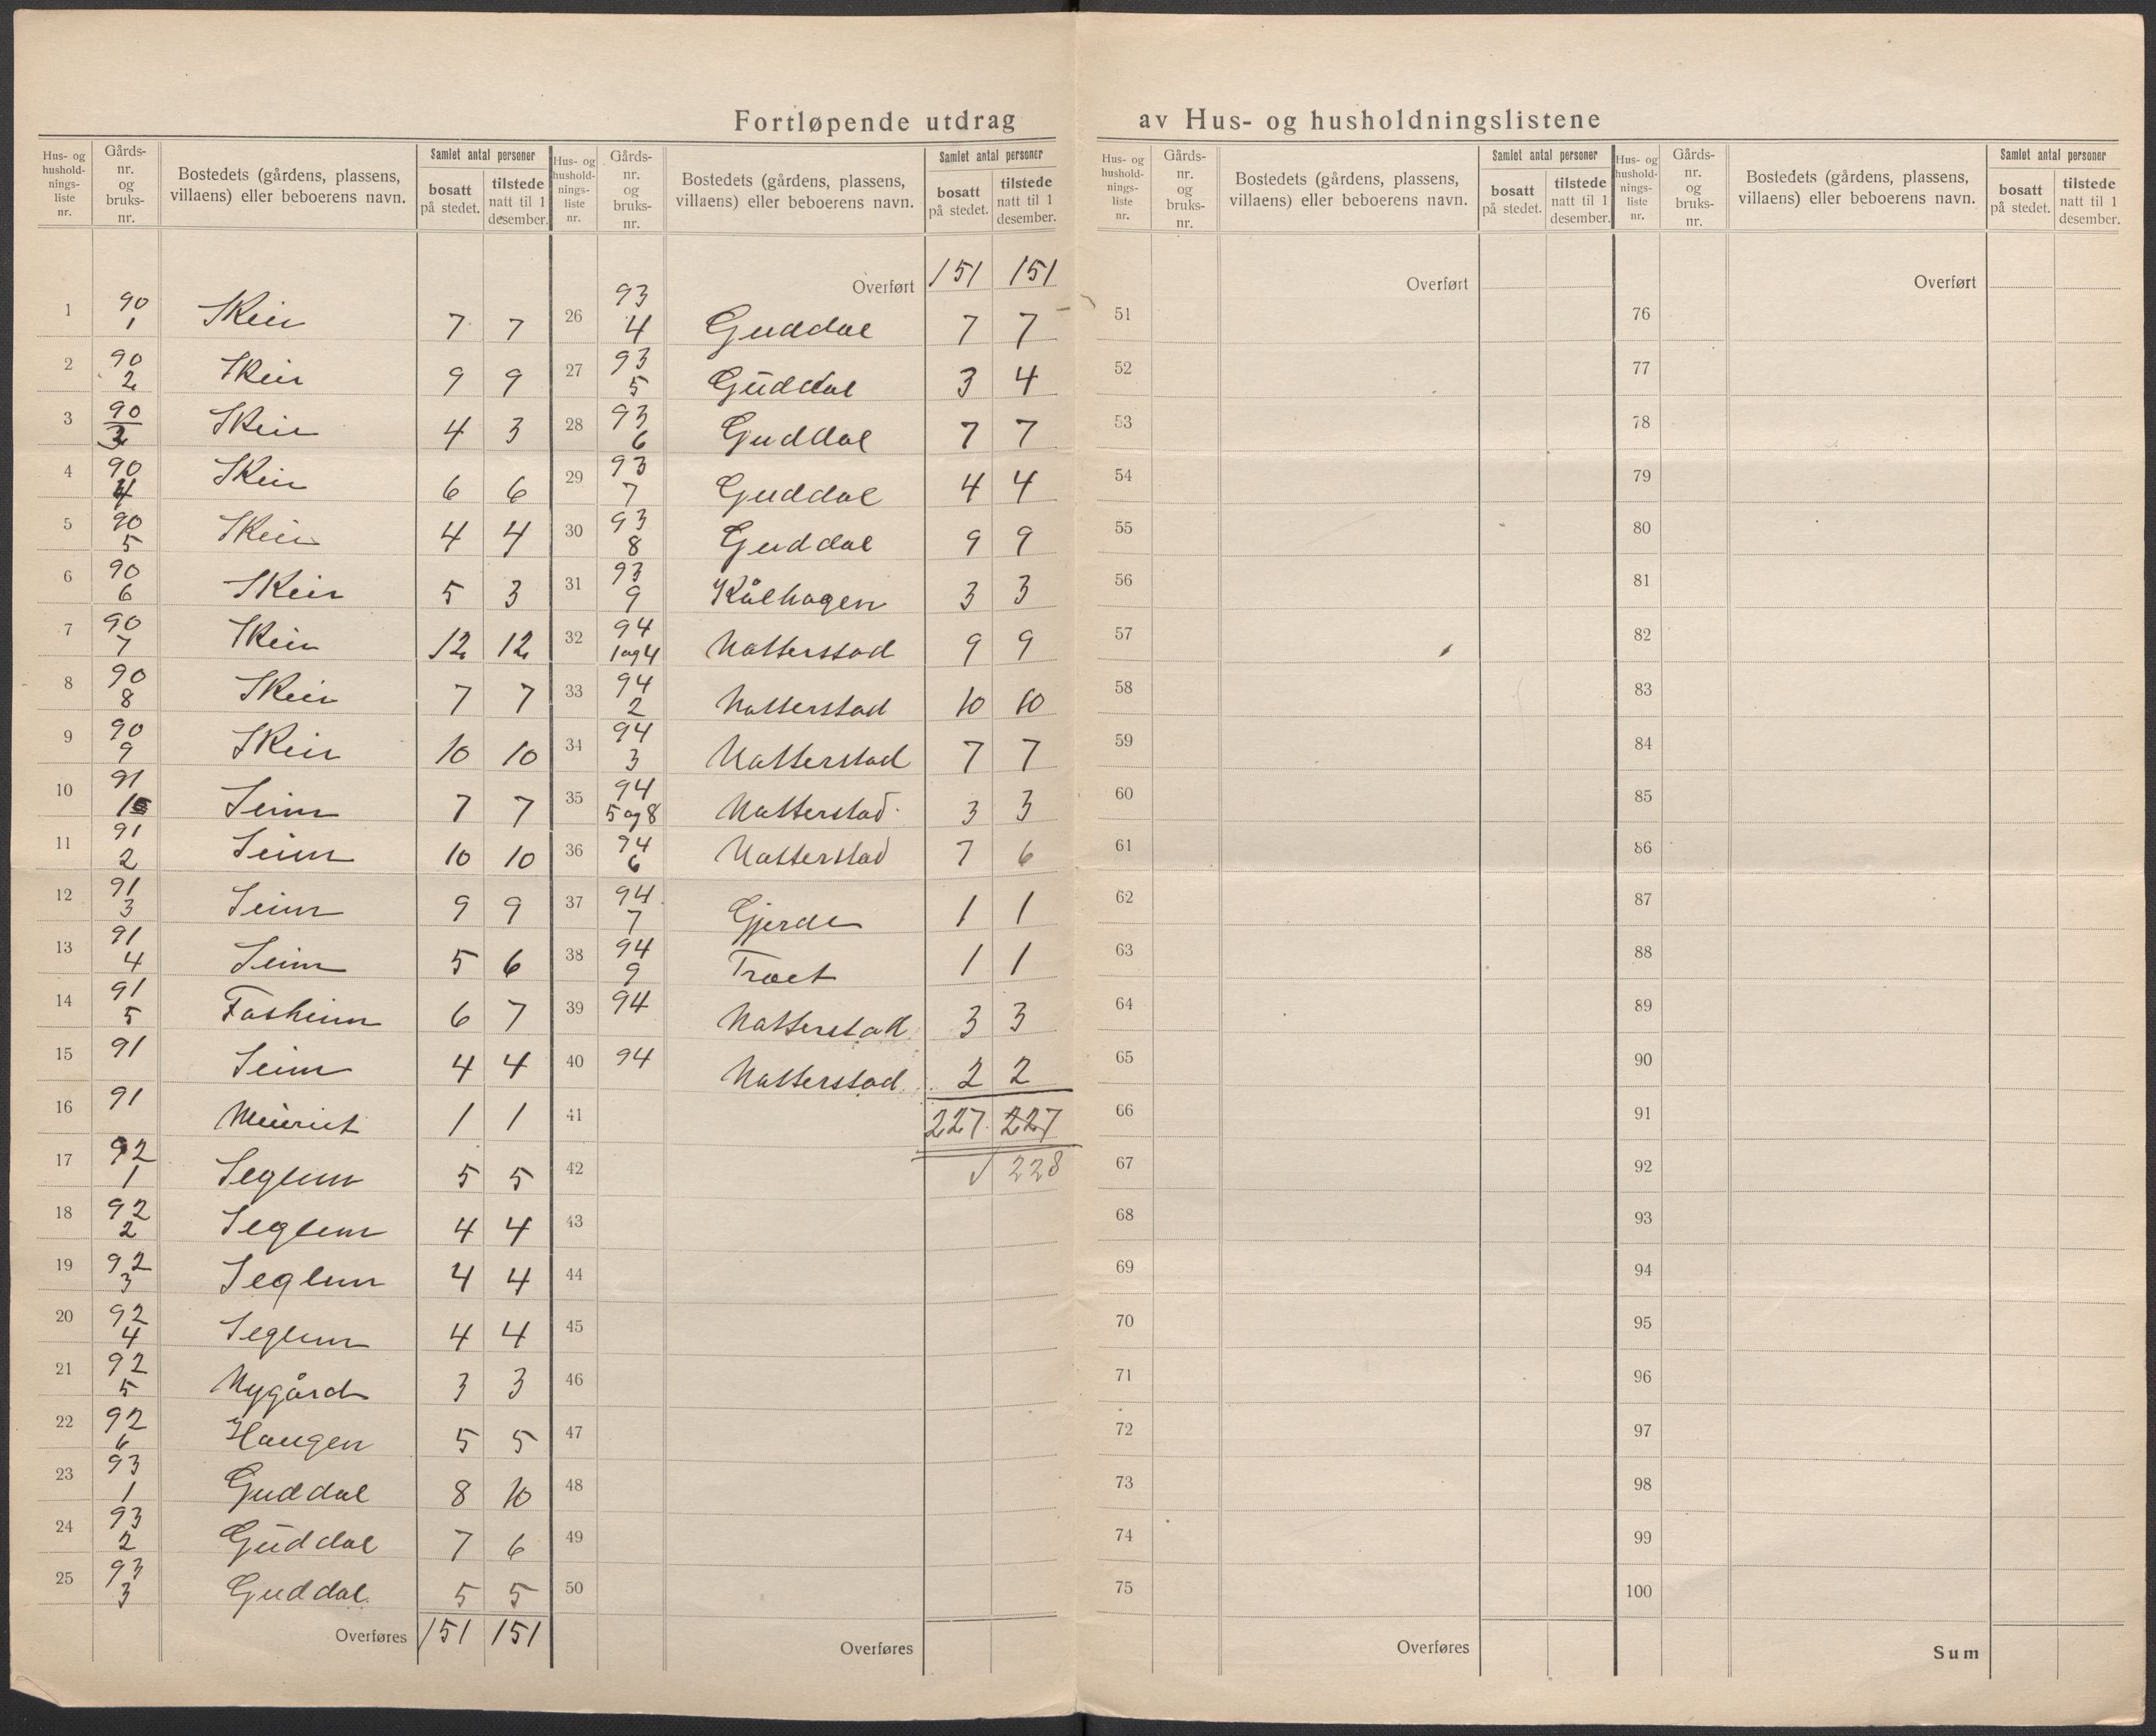 Fortløpende utdrag av Hus- og husholdningslistene
Hus- og hushold-nings-liste nr. Gårds-nr. og bruks-nr. Bostedets (gårdens, plassens, villaens) eller beboerens navn. Samlet antal personer bosatt på stedet. tilstede natt til 1 desember.
1 90 1 Skeie 7 7
2 90 2 Skeie 9 9
3 90 3 Skeie 4 3
4 90 4 Skeie 6 6
5 90 5 Skeie 4 4
6 90 6 Skeie 5 3
7 90 7 Skeie 12 12
8 90 8 Skeie 7 7
9 90 9 Skeie 10 10
10 91 1 Seim 7 7
11 91 2 Seim 10 10
12 91 3 Seim 9 9
13 91 4 Seim 5 6
14 91 5 Fasheim 6 7
15 91 Seim 4 4
16 91 Meieriet 1 1
17 92 1 Seglem 5 5
18 92 2 Seglem 4 4
19 92 3 Seglem 4 4
20 92 4 Seglem 4 4
21 92 5 Nygård 3 3
22 92 6 Haugen 5 5
23 93 1 Guddal 8 10
24 93 2 Guddal 7 6
25 93 3 Guddal 5 5
Overføres 151 151
Hus- og hushold-nings-liste nr. Gårds-nr. og bruks-nr. Bostedets (gårdens, plassens, villaens) eller beboerens navn. Samlet antal personer bosatt på stedet. tilstede natt til 1 desember.
Overført 151 151
26 93 4 Guddal 7 7
27 93 5 Guddal 3 4
28 93 6 Guddal 7 7
29 93 7 Guddal 4 4
30 93 8 Guddal 9 9
31 93 9 Kålhagen 3 3
32 94 1 og 4 Natterstad 9 9
33 94 2 Natterstad 10 10
34 94 3 Natterstad 7 7
35 94 5 og 8 Natterstad 3 3
36 94 6 Natterstad 7 6
37 94 7 Gjerde 1 1
38 94 9 Traet 1 1
39 94 Natterstad 3 3
40 94 Natterstad 2 2
41 227 227
42 √ 228
43
44
45
46
47
48
49
50
Overføres
Hus- og hushold-nings-liste nr. Gårds-nr. og bruks-nr. Bostedets (gårdens, plassens, villaens) eller beboerens navn. Samlet antal personer bosatt på stedet. tilstede natt til 1 desember.
Overført
51
52
53
54
55
56
57
58
59
60
61
62
63
64
65
66
67
68
69
70
71
72
73
74
75
Overføres
Hus- og hushold-nings-liste nr. Gårds-nr. og bruks-nr. Bostedets (gårdens, plassens, villaens) eller beboerens navn. Samlet antal personer bosatt på stedet. tilstede natt til 1 desember.
Overført
76
77
78
79
80
81
82
83
84
85
86
87
88
89
90
91
92
93
94
95
96
97
98
99
100
Sum